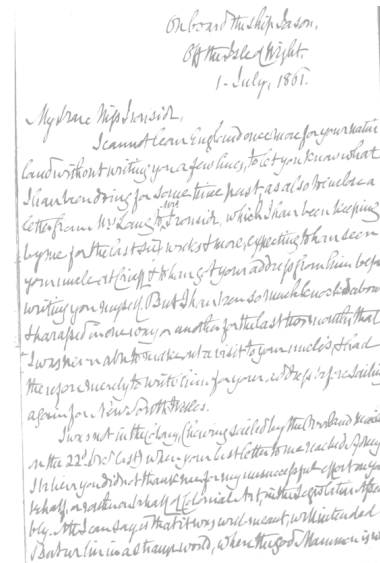 On board the ship Jason,
Off the Isle of Wight.
1 July, 1861.
My dear Miss Ironside,
I cannot leave England once more for your native
land without writing you a few lines, to let you know what
I have been doing for some time past as also to enclose a
letter from Mrs Lang to Mrs Ironside, which I have been keeping
by me for the last six weeks & more, expecting to have seen
your uncle at & to have got your address from him before
writing you myself. But I have been so much knocked about
& harassed in one way or another for the last two months that
I was never able to make out a visit to your uncle's, & had
therefore merely to write him for your address before sailing
again for New South Wales.
I was not in the colony, (having sailed by the Overland
on the 22d Decr last) when your last letter to me reached Sydney
in which you did me for my unsuccessful effort on your
behalf, or rather on behalf of Colonial Art, in the Legislative Assem
bly. All I can say is that it was well meant, well intended
But we live in a strange world, where the god Mammon is